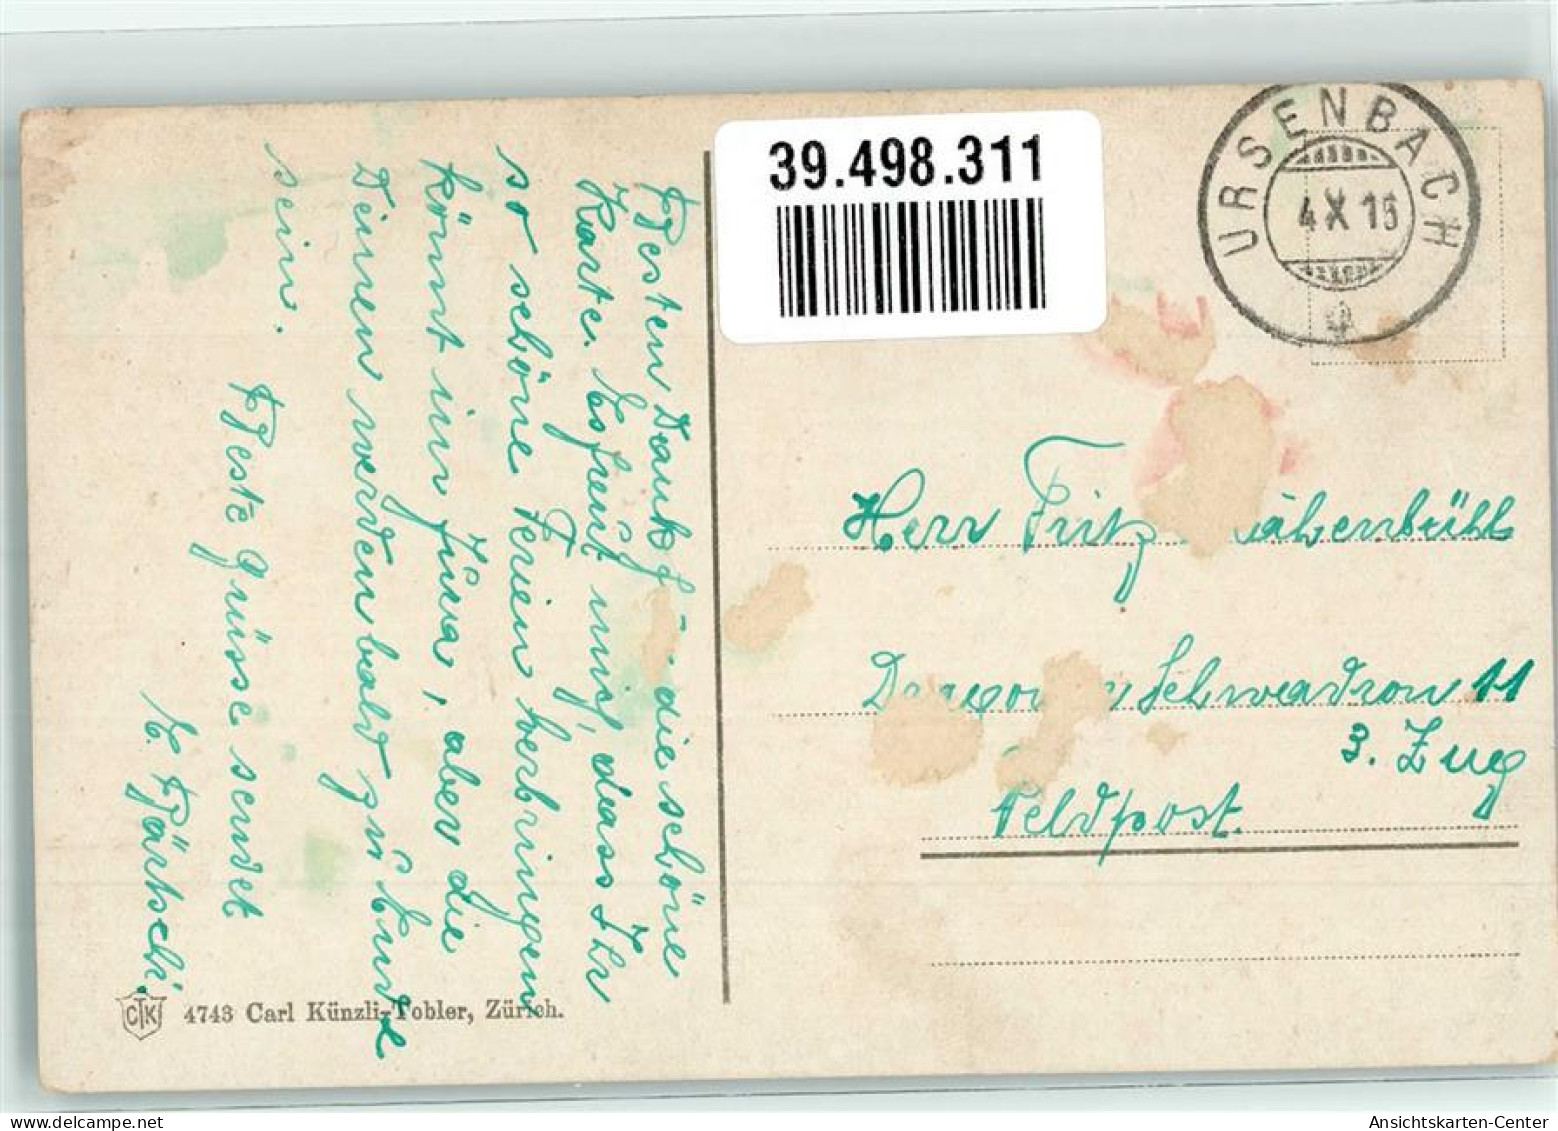 39.498.311
URSENBACH
4 X 15
Besten Dank für die schöne
Karte. Es freut mich, dass Ihr
so schöne Ferien verbringen
könnt im Jura, aber die
Deinen werden bald zu Ende
sein.
Beste Grüsse sendet
E. Bärtschi.
Herr Fritz
Dragoner Schwadron 11
3. Zug
Feldpost.
CTK 4743 Carl Künzli-Tobler, Zürich.
www.delcampe.net
Ansichtskarten-Center